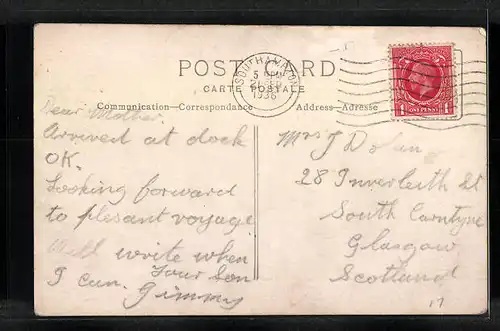 POST CARD
CARTE POSTALE
Communication—Correspondance
Address—Adresse
SOUTHAMPTON
5 PM
1936
1d ONE PENNY 1d
Dear Mother.
Arrived at dock
OK.
Looking forward
to plesant voyage
Will write when
I can. Your Son
Jimmy
Mrs J Dolan
28 Inverleith St
South Carntyne
Glasgow
Scotland
17